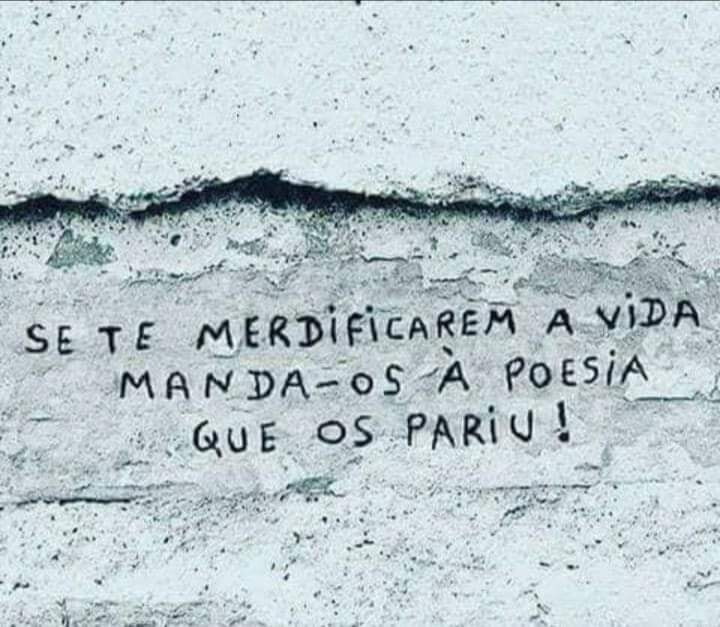 SE TE MERDIFICAREM A VIDA
MANDA-OS À POESIA
QUE OS PARIU!